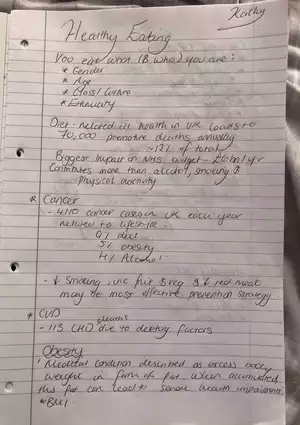 Kathy
Healthy Eating
You eat what (& who) you are:
* Gender
* Age
* Class/Culture
* Ethnicity
Diet-related ill health in UK leads to
70,000 premature deaths annually
~12% of total
Biggest impact on NHS budget - £6bn/yr
Contributes more than alcohol, smoking &
Physical inactivity
* Cancer
- 4/10 cancer cases in UK each year
related to lifestyle:
9% diet
5% obesity
4% Alcohol
- ↓ Smoking, inc fruit & veg & ↓ red meat
may be most effective prevention strategy
* CVD
- 1/3 CHD deaths due to dietary factors
Obesity
'Medical condition described as excess body
weight in form of fat. When accumulated
this fat can lead to severe health impairments'
* BMI